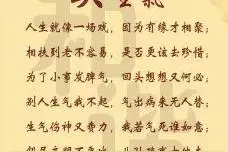 人生就像一场戏，因为有缘才相聚；
相扶到老不容易，是否更该去珍惜；
为了小事发脾气，回头想想又何必；
别人生气我不气，气出病来无人替；
生气伤神又费力，我若气死谁如意；